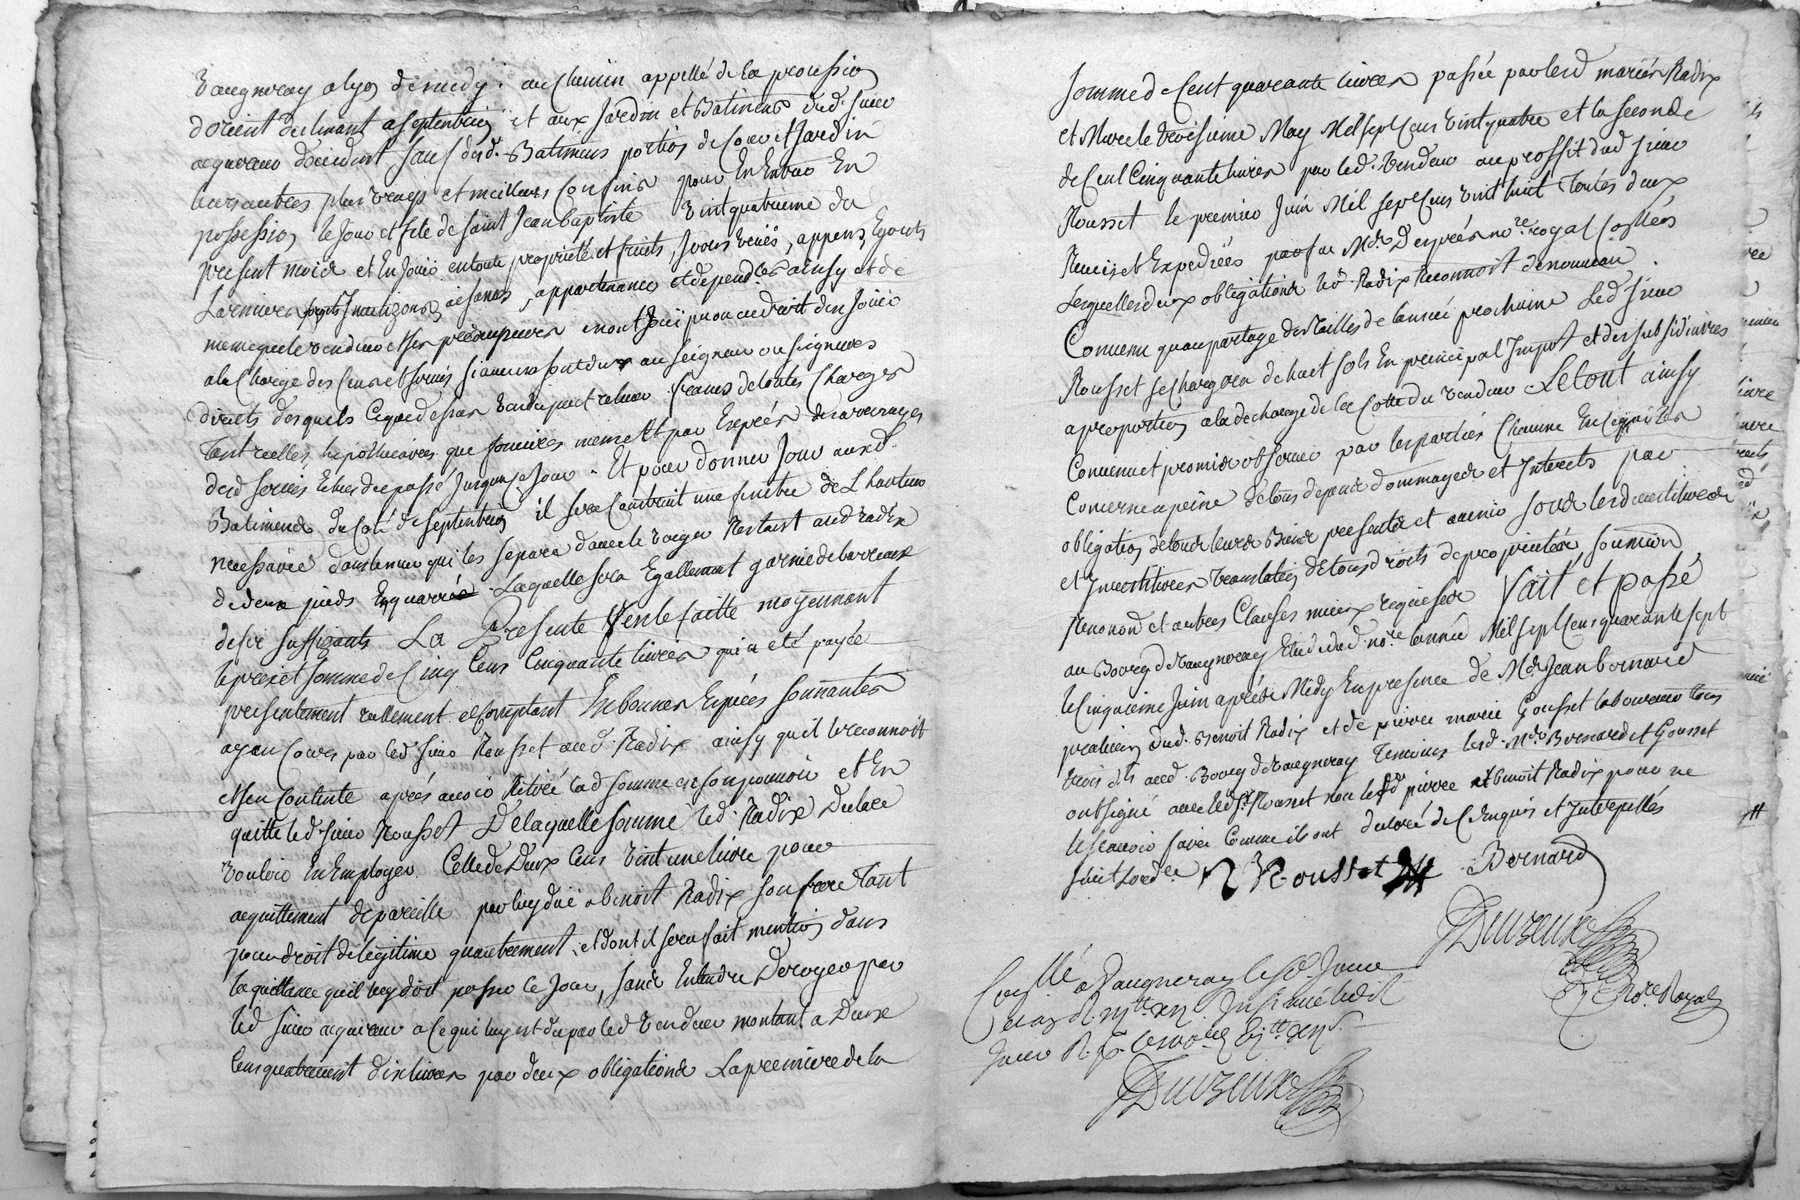 Vaugneray a lyon de midy. au Chemin appellé de la procession
d'orient declinant a septentrion et aux Jardin et Batiments dud. sieur
acquereur d'occident sauf desd. Batiments portion de Cour et Jardin
leurs autres plus vrays et meilleurs Confins pour En Entrer En
possession le Jour et fete de saint Jean baptiste vintquatrieme du
present mois et En Jouir en toute propriété et fruits, Jssus veües, appens, Egouts
Larmiers aisances, appartenances et depend.ces ainsy et de
meme que le vendeur et ses predecesseurs en ont Joüi pu ou eu droit den Joüir
a la Charge des Cens et servis si aucuns sont dus au seigneur ou seigneurs
directs desquels Ce que dessus vendu peut relever francs de toutes Charges
tant reelles hipothecaires que foncieres meme par Exprés des arrerages
desd servis Echus du passé Jusqu'a ce Jour. Et pour donner Jour auxd.
Batiments du Coté de septentrion il sera Construit une fenetre de L hauteur
necessaire dans le mur qui les separe d'avec le verger Restant aud Radix
de deux pieds En quarrée Laquelle sera Egallement garnie de barreaux
de fer suffizants La Presente Vente faitte moyennant
le prix et somme de Cinq Cens Cinquante livres qui a été payée
presentement reellement et Comptant En bonnes Espéces sonnantes
ayant Cours par led. sieur Rousset aud. Radix ainsy qu il le reconnoit
et s'en Contente aprés avoir Retiré lad somme en son pouvoir et En
quitte led. sieur Rousset De laquelle somme led. Radix Declare
vouloir En Employer Celle de Deux Cens vint une livre pour
acquittement de pareille par luy düe a benoit Radix son frere tant
pour droit de légitime qu'autrement, et dont il sera fait mention dans
la quittance qu'il luy doit passer Ce Jour, sans Entendre Deroger par
led sieur acquereur a Ce qui luy est du par led. vendeur montant a Deux
Cens quatrevint dix livres par deux obligations La premiere de la
somme de Cent quarante livres passée par lesd mariés Radix
et Marc le troisieme May Mil sept Cens vint quatre et la seconde
de Cent Cinquante livres par led. vendeur au proffit dud sieur
Rousset le premier Juin Mil sept Cens vint huit toutes deux
Receües et Expediées par feu Me. Després no.re royal
Lesquelles deux obligations led. Radix Reconnoit de nouveau.
Convenu qu'au partage des tailles de l'année prochaine led sieur
Rousset se Chargera de huit sols En principal Jmpot et des subsidiaires
a proportion a la decharge de la Cotte du vendeur Le tout ainsy
Convenu et promis observer par les parties Chacune En Ce qui les
Concerne a peine de tous depens dommages et Interets par
obligation de tous leurs Biens presents et avenir sous les Constitutions
et Investitures translation de tous droits de proprietés, soumission
Renonon et autres Clauses mieux requises Fait et passé
au Bourg de Vaugneray Etude dud. no.re l'année Mil sept Cens quarante sept
le Cinquieme Juin aprés Midy En presence de Me. Jean Bernard
praticien dud. Benoit Radix et de pierre marie Gousset laboureur tous
trois dts. aud. Bourg de Vaugneray Temoins lesd. Me. Bernard et Gousset
ont signé avec led Sr. Rousset non lesd pierre et benoit Radix pour ne
le sçavoir faire Comme ils ont declaré de Ce Enquis et Interpellés
suivt Lord.ce Rousset Bernard
Duvzeux
No.re Royal
Con.llé a Vaugneray le Juin
Insinué led.
Duvzeux